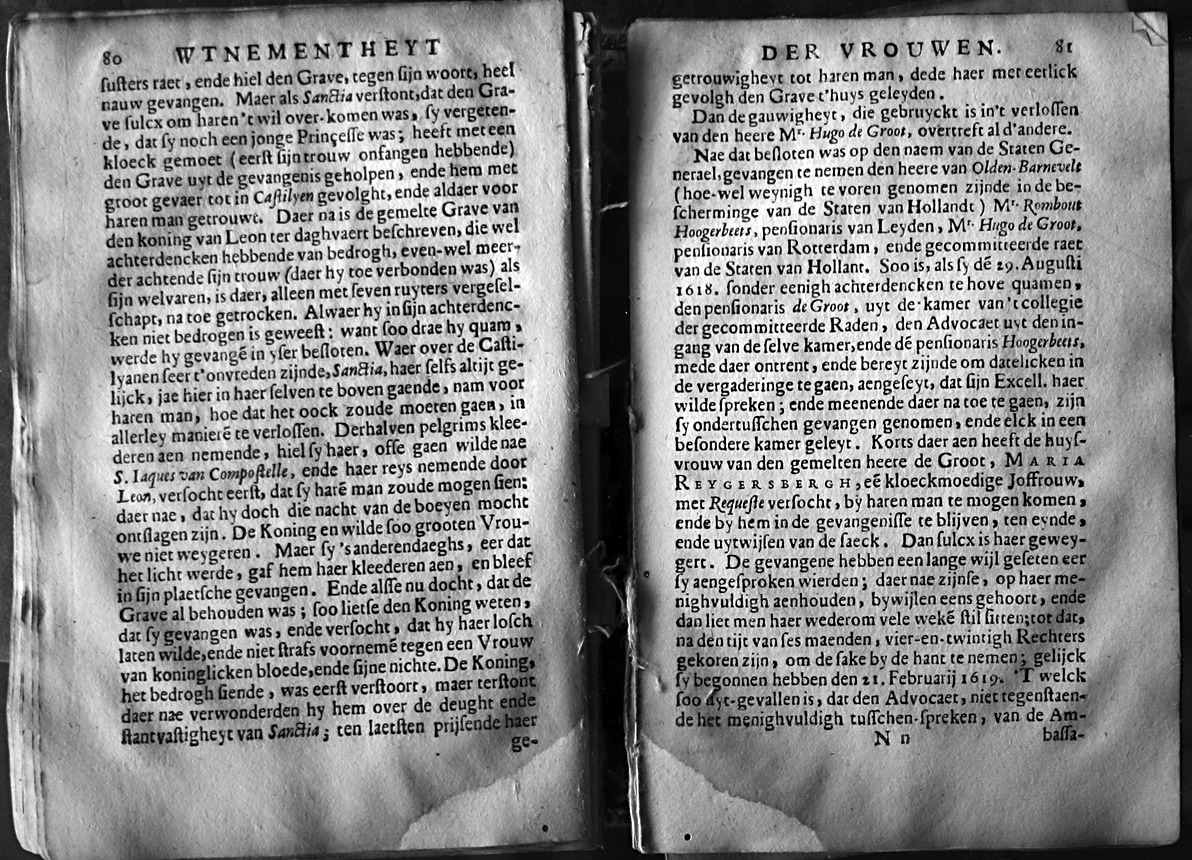 80 WTNEMENTHEYT
ſuſters raet, ende hiel den Grave, tegen ſijn woort, heel
nauw gevangen. Maer als Sanctia verſtont, dat den Gra-
ve ſulcx om haren 't wil over-komen was, ſy vergeten-
de, dat ſy noch een jonge Prinçeſſe was; heeft met een
kloeck gemoet (eerſt ſijn trouw onfangen hebbende)
den Grave uyt de gevangenis geholpen, ende hem met
groot gevaer tot in Caſtilyen gevolght, ende aldaer voor
haren man getrouwt. Daer na is de gemelte Grave van
den koning van Leon ter daghvaert beſchreven, die wel
achterdencken hebbende van bedrogh, even-wel meer-
der achtende ſijn trouw (daer hy toe verbonden was) als
ſijn welvaren, is daer, alleen met ſeven ruyters vergeſel-
ſchapt, na toe getrocken. Alwaer hy in ſijn achterdenc-
ken niet bedrogen is geweeſt: want ſoo drae hy quam,
werde hy gevangē in yſer beſloten. Waer over de Caſti-
lyanen ſeer t'onvreden zijnde, Sanctia, haer ſelfs altijt ge-
lijck, jae hier in haer ſelven te boven gaende, nam voor
haren man, hoe dat het oock zoude moeten gaen, in
allerley manierē te verloſſen. Derhalven pelgrims klee-
deren aen nemende, hiel ſy haer, oſſe gaen wilde nae
S. Iaques van Compoſtelle, ende haer reys nemende door
Leon, verſocht eerſt, dat ſy harē man zoude mogen ſien;
daer nae, dat hy doch die nacht van de boeyen mocht
ontſlagen zijn. De Koning en wilde ſoo grooten Vrou-
we niet weygeren. Maer ſy 's anderendaeghs, eer dat
het licht werde, gaf hem haer kleederen aen, en bleef
in ſijn plaetſche gevangen. Ende alſſe nu docht, dat de
Grave al behouden was; ſoo lietſe den Koning weten,
dat ſy gevangen was, ende verſocht, dat hy haer loſch
laten wilde, ende niet ſtrafs voornemē tegen een Vrouw
van koninglicken bloede, ende ſijne nichte. De Koning,
het bedrogh ſiende, was eerſt verſtoort, maer terſtont
daer nae verwonderden hy hem over de deught ende
ſtantvaſtigheyt van Sanctia; ten laetſten prijſende haer
ge-
DER VROUWEN. 81
getrouwigheyt tot haren man, dede haer met eerlick
gevolgh den Grave t'huys geleyden.
Dan de gauwigheyt, die gebruyckt is in't verloſſen
van den heere Mr. Hugo de Groot, overtreft al d'andere.
Nae dat beſloten was op den naem van de Staten Ge-
nerael, gevangen te nemen den heere van Olden-Barnevelt
(hoe-wel weynigh te voren genomen zijnde in de be-
ſcherminge van de Staten van Hollandt) Mr. Rombout
Hoogerbeets, penſionaris van Leyden, Mr. Hugo de Groot,
penſionaris van Rotterdam, ende gecommitteerde raet
van de Staten van Hollant. Soo is, als ſy dē 29. Auguſti
1618. ſonder eenigh achterdencken te hove quamen,
den penſionaris de Groot, uyt de kamer van 't collegie
der gecommitteerde Raden, den Advocaet uyt den in-
gang van de ſelve kamer, ende dē penſionaris Hoogerbeets,
mede daer ontrent, ende bereyt zijnde om datelicken in
de vergaderinge te gaen, aengeſeyt, dat ſijn Excell. haer
wilde ſpreken; ende meenende daer na toe te gaen, zijn
ſy ondertuſſchen gevangen genomen, ende elck in een
beſondere kamer geleyt. Korts daer aen heeft de huyſ-
vrouw van den gemelten heere de Groot, MARIA
REYGERSBERGH, eē kloeckmoedige Joffrouw,
met Requeſte verſocht, by haren man te mogen komen,
ende by hem in de gevangeniſſe te blijven, ten eynde,
ende uytwijſen van de ſaeck. Dan ſulcx is haer gewey-
gert. De gevangene hebben een lange wijl geſeten eer
ſy aengeſproken wierden; daer nae zijnſe, op haer me-
nighvuldigh aenhouden, bywijlen eens gehoort, ende
dan liet men haer wederom vele wekē ſtil ſitten; tot dat,
na den tijt van ſes maenden, vier-en-twintigh Rechters
gekoren zijn, om de ſake by de hant te nemen; gelijck
ſy begonnen hebben den 21. Februarij 1619. 'T welck
ſoo uyt-gevallen is, dat den Advocaet, niet tegenſtaen-
de het menighvuldigh tuſſchen-ſpreken, van de Am-
N n baſſa-